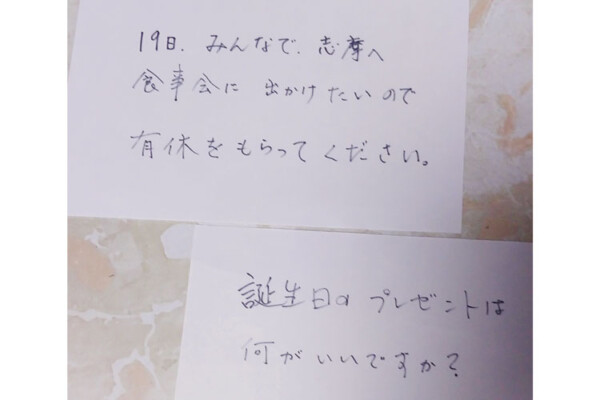 19日、みんなで、志摩へ
食事会に 出かけたいので
有休をもらってください。
誕生日の プレゼントは
何がいいですか?